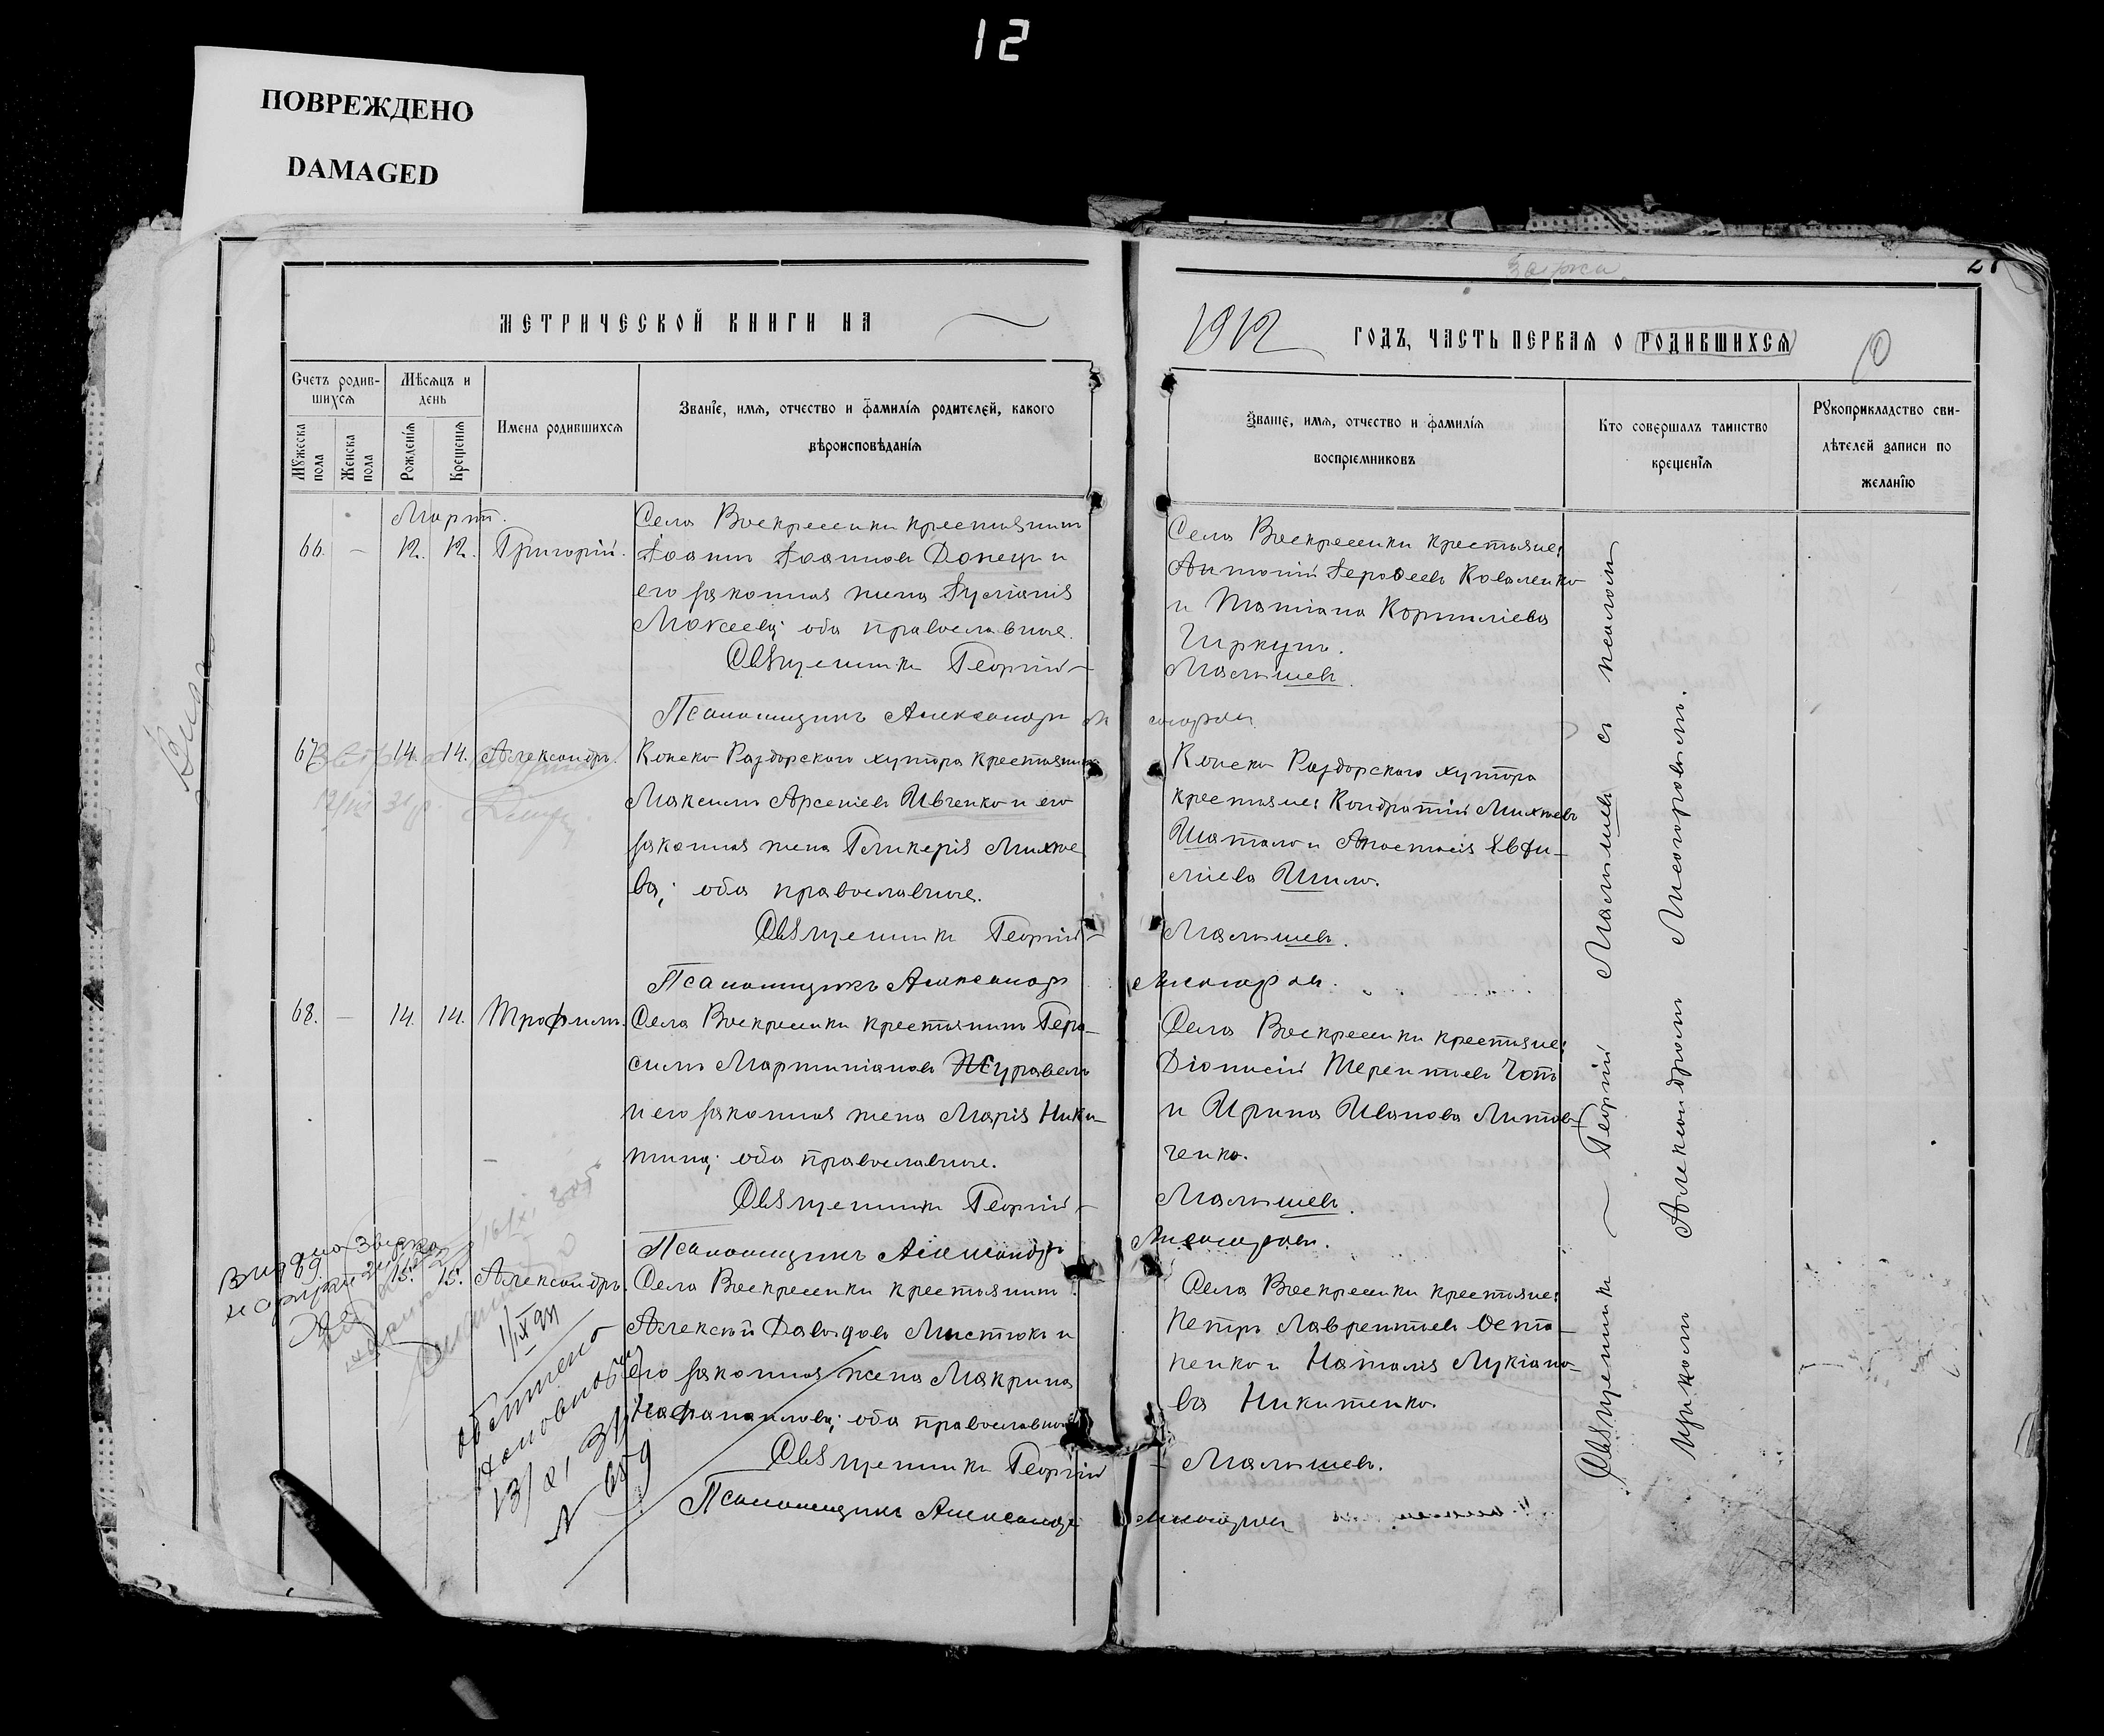 12
ПОВРЕЖДЕНО
DAMAGED
МЕТРИЧЕСКОЙ КНИГИ НА
1912 ГОДЪ, ЧАСТЬ ПЕРВАЯ О РОДИВШИХСЯ
Счетъ родив-
шихся
Мужеска пола
Женска пола
Мѣсяцъ и
день
Рожденія
Крещенія
Имена родившихся
Званіе, имя, отчество и фамилія родителей, какого
вѣроисповѣданія
Званіе, имя, отчество и фамилія
воспріемниковъ
Кто совершалъ таинство
крещенія
Рукоприкладство сви-
дѣтелей записи по
желанію
Мартъ.
66. – 12. 12. Григорій.
Села Воскресенки крестьянинъ
Іоаннъ Іоанновъ Донецъ и
его законная жена Іуліанія
Моисеева; оба православные.
Священникъ Георгій
Псаломщикъ Александръ
Села Воскресенки крестьяне:
Антоній Іерофеевъ Коваленко
и Татіана Корниліева
Чиркунъ.
Малышевъ.
67. 14. 14. Александръ.
Конско-Раздорскаго хутора крестьянинъ
Максимъ Арсеніевъ Ивченко и его
законная жена Гликерія Михее-
ва; оба православные.
Священникъ Георгій
Псаломщикъ Александръ
Конско-Раздорскаго хутора
крестьяне: Кондратій Михеевъ
Шатало и Анастасія Евфи-
міева Шило.
Малышевъ.
68. – 14. 14. Трофимъ.
Села Воскресенки крестьянинъ Гера-
симъ Мартиніановъ Журавель
и его законная жена Марія Ники-
тина; оба православные.
Священникъ Георгій
Псаломщикъ Александръ
Села Воскресенки крестьяне:
Діонисій Терентіевъ Чотъ
и Ирина Иванова Литов-
ченко.
Малышевъ.
69. 15. 15. Александръ.
Села Воскресенки крестьянинъ
Алексѣй Давыдовъ Мистюкъ и
его законная жена Макрина
Нафанаилова; оба православные.
Священникъ Георгій
Псаломщикъ Александръ
Села Воскресенки крестьяне:
Петръ Лаврентіевъ Оста-
пенко и Наталія Лукіано-
ва Никитенко.
Малышевъ.
Священникъ Георгій Малышевъ съ псалом-
щикомъ Александромъ
N 659